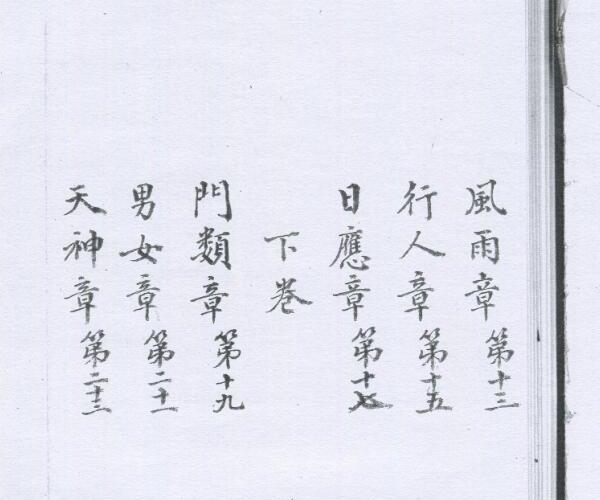 風雨章第十三
行人章第十五
日應章第十七
下卷
門類章第十九
男女章第二十一
天神章第二十三